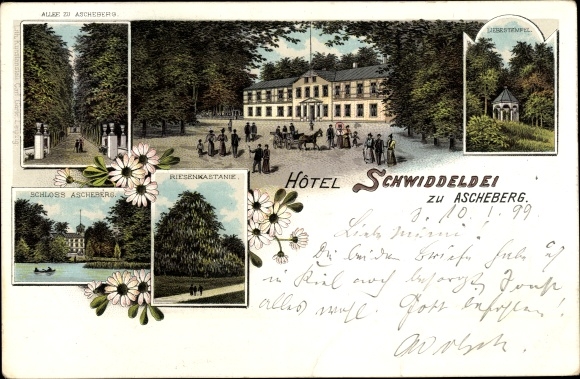 ALLEE ZU ASCHEBERG.
LIEBESTEMPEL.
SCHLOSS ASCHEBERG.
RIESENKASTANIE.
HÔTEL SCHWIDDELDEI
ZU ASCHEBERG.
d. 10. 1. 99
Liebe Mimi!
Die beiden Briefe habe ich
in Kiel noch besorgt. Sonst
alles wohl. Gott befohlen!
Adolph.